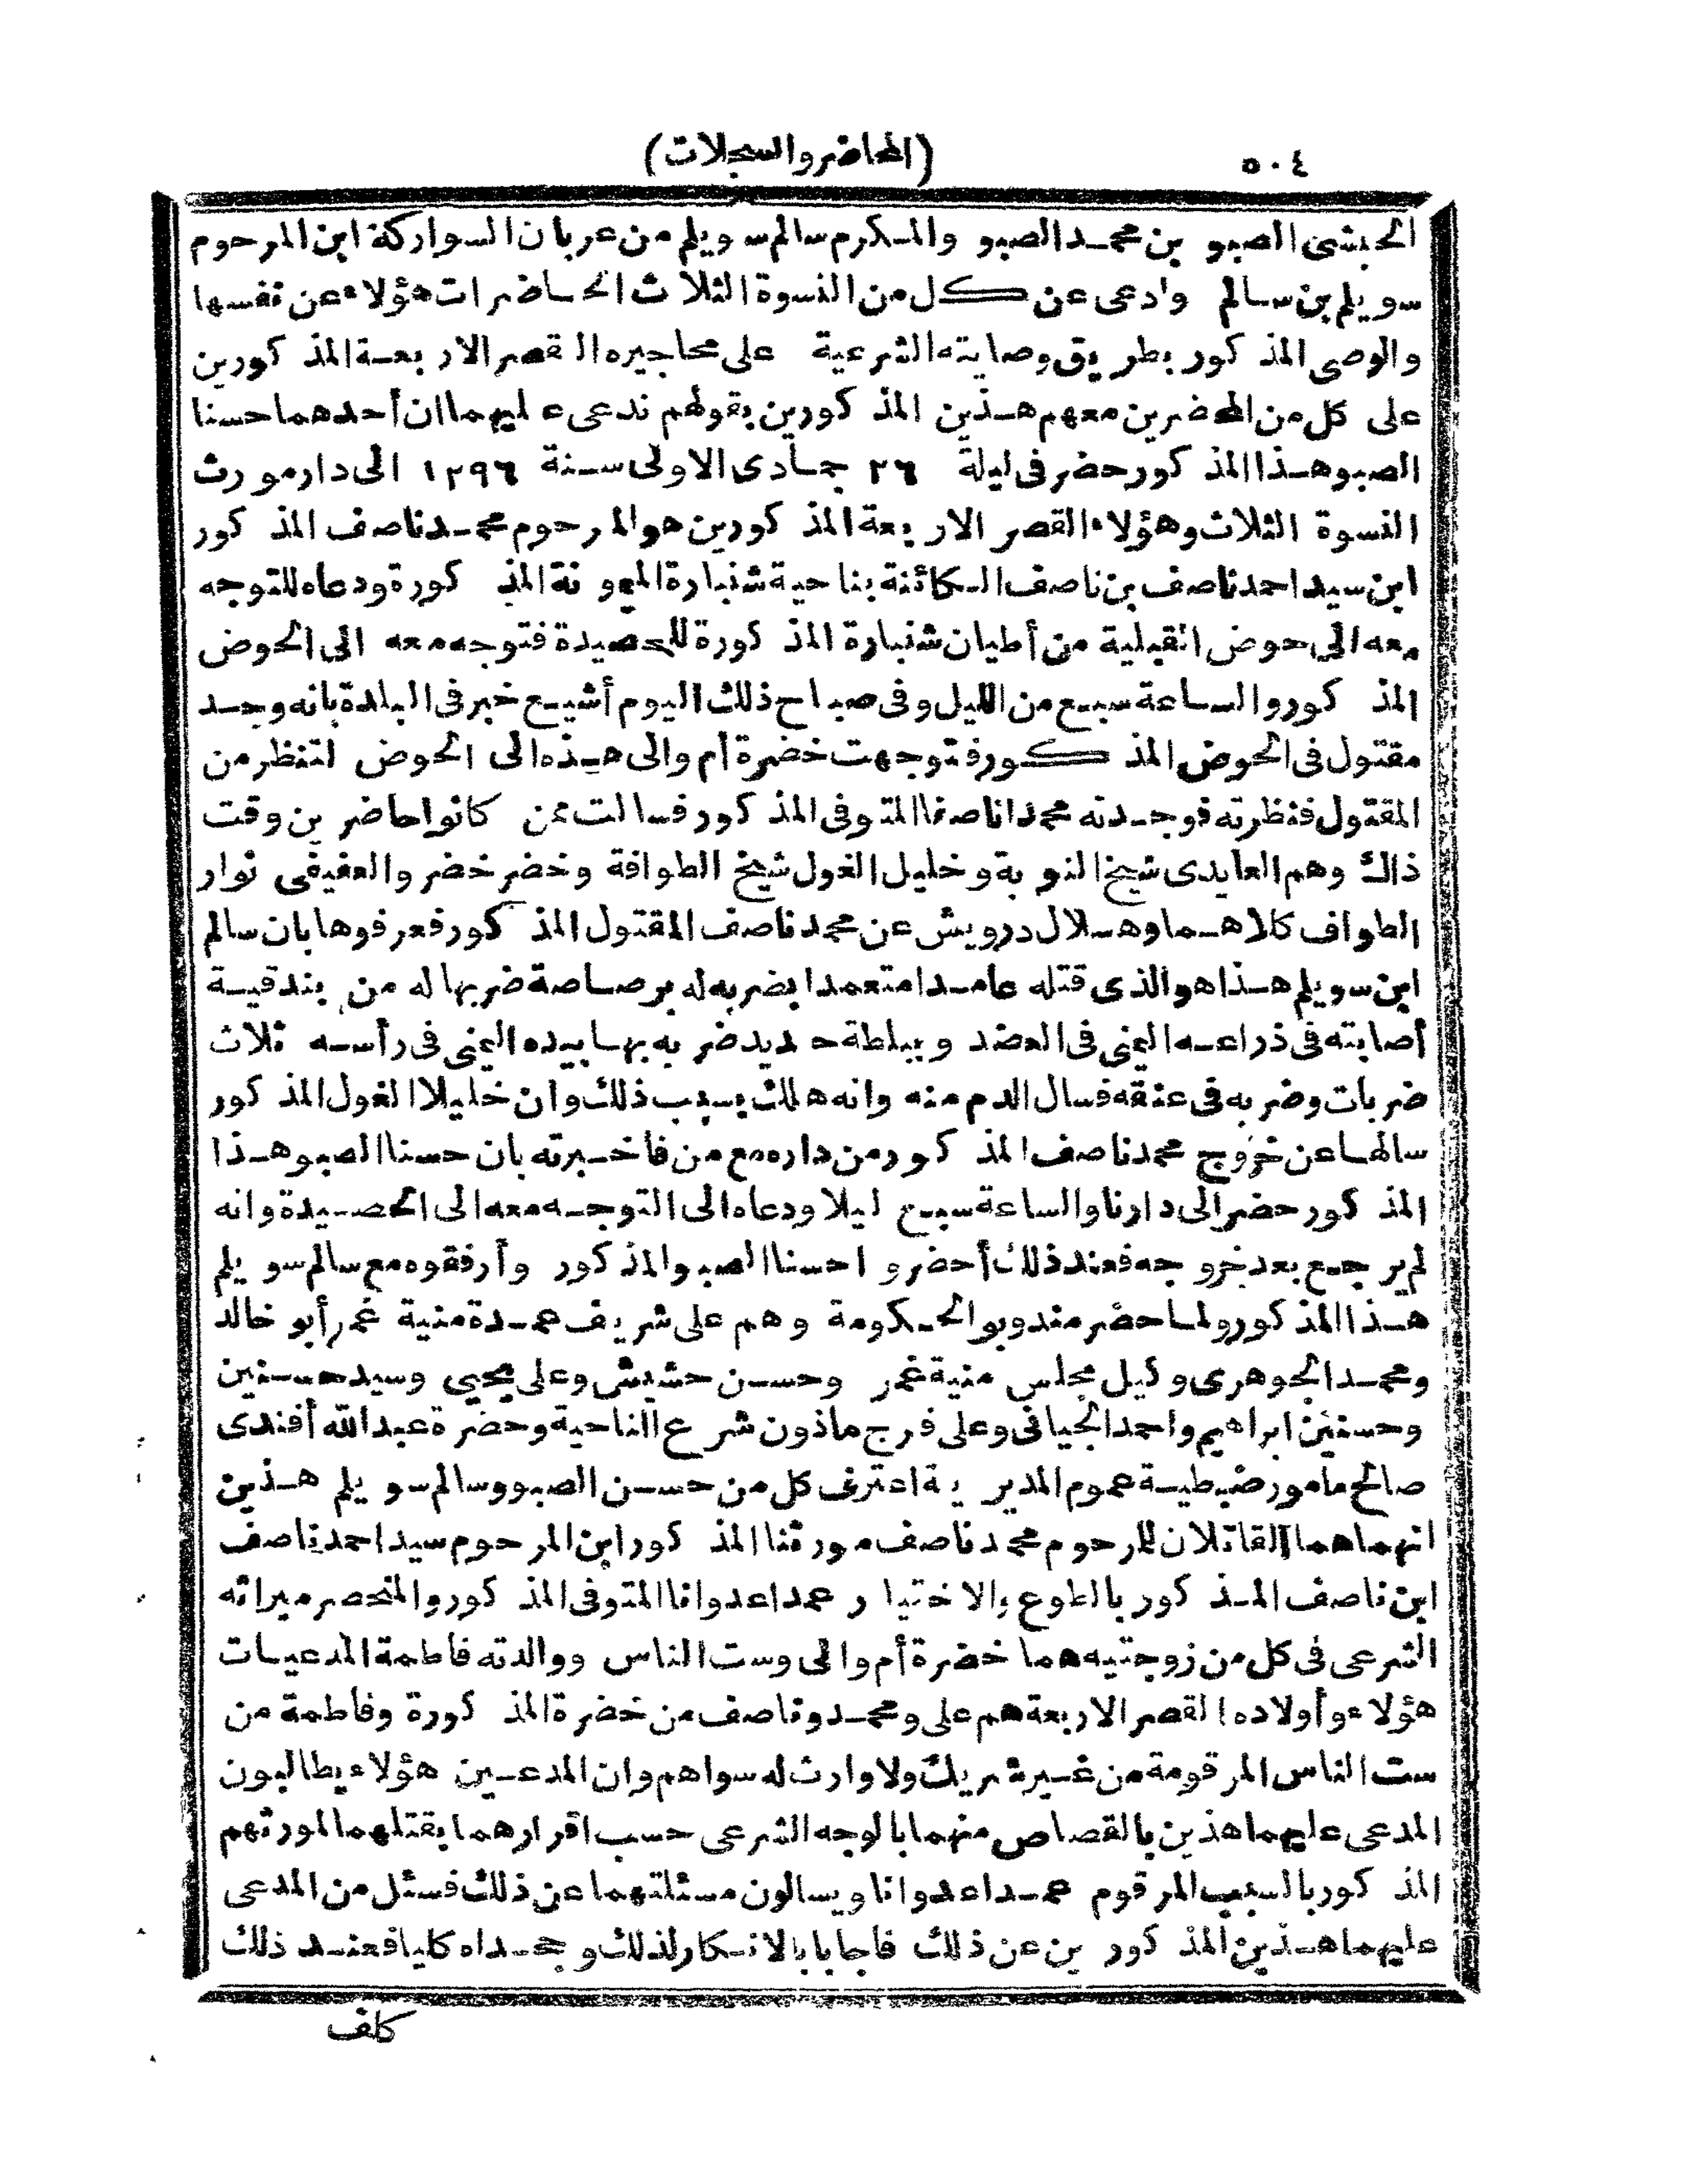 ٥٠٤
(المحاضر والسجلات)
الحبشى الصبو بن محمد الصبو والمكرم سالم سويلم من عربان السواركة ابن المرحوم
سويلم بن سالم وادعى عن كل من النسوة الثلاث الحاضرات هؤلاء عن نفسها
والوصى المذكور بطريق وصايته الشرعية على محاجيره القصر الاربعة المذكورين
على كل من المحضرين معهم هذين المذكورين بقولهم ندعى عليهما ان أحدهما حسنا
الصبو هذا المذكور حضر فى ليلة ٢٦ جمادى الاولى سنة ١٢٩٦ الى دار مورث
النسوة الثلاث وهؤلاء القصر الاربعة المذكورين هو المرحوم محمد ناصف المذكور
ابن سيد احمد ناصف بن ناصف الكائنة بناحية شنبارة الميمونة المذكورة ودعاه للتوجه
معه الى حوض القبلية من أطيان شنبارة المذكورة للحصيدة فتوجه معه الى الحوض
المذكور والساعة سبع من الليل وفى صباح ذلك اليوم أشيع خبر فى البلدة بانه وجد
مقتول فى الحوض المذكور فتوجهت خضرة أم والى هذه الى الحوض لتنظر من
المقتول فنظرته فوجدته محمدا ناصفا المتوفى المذكور فسالت ممن كانوا حاضرين وقت
ذاك وهم العايدى شيخ النوبة وخليل الغول شيخ الطوافة وخضر خضر والعفيفى نوار
الطواف كلاهما وهلال درويش عن محمد ناصف المقتول المذكور فعرفوها بان سالم
ابن سويلم هذا هو الذى قتله عامدا متعمدا بضربه له برصاصة ضربها له من بندقية
أصابته فى ذراعه اليمنى فى العضد وببلطة حديد ضربه بها بيده اليمنى فى رأسه ثلاث
ضربات وضربه فى عنقه فسال الدم منه وانه هلك بسبب ذلك وان خليلا الغول المذكور
سالها عن خروج محمد ناصف المذكور من داره مع من فاخبرته بان حسنا الصبو هذا
المذكور حضر الى دارنا والساعة سبع ليلا ودعاه الى التوجه معه الى الحصيدة وانه
لم يرجع بعد خروجه فعند ذلك أحضروا حسنا الصبو المذكور وأرفقوه مع سالم سويلم
هذا المذكور ولما حضر مندوبو الحكومة وهم على شريف عمدة منية غمر أبو خالد
ومحمد الجوهرى وكيل مجلس منية غمر وحسن حشيش وعلى يحيى وسيد حسنين
وحسنين ابراهيم واحمد الجيانى وعلى فرج ماذون شرع الناحية وحضرة عبد الله أفندى
صالح مامور ضبطية عموم المديرية اعترف كل من حسن الصبو وسالم سويلم هذين
انهما هما القاتلان للرحوم محمد ناصف مورثنا المذكور ابن المرحوم سيد احمد ناصف
ابن ناصف المذكور بالطوع والاختيار عمدا عدوانا المتوفى المذكور والمنحصر ميراثه
الشرعى فى كل من زوجتيه هما خضرة أم والى وست الناس ووالدته فاطمة المدعيات
هؤلاء وأولاده القصر الاربعة هم على ومحمد وناصف من خضرة المذكورة وفاطمة من
ست الناس المرقومة من غير شريك ولا وارث له سواهم وان المدعين هؤلاء يطالبون
المدعى عليهما هذين بالقصاص منهما بالوجه الشرعى حسب اقرارهما بقتلهما لمورثهم
المذكور بالسبب المرقوم عمدا عدوانا ويسالون مسئلتهما عن ذلك فسئل من المدعى
عليهما هذين المذكورين عن ذلك فاجابا بالانكار لذلك وجحداه كليا فعند ذلك
كلف